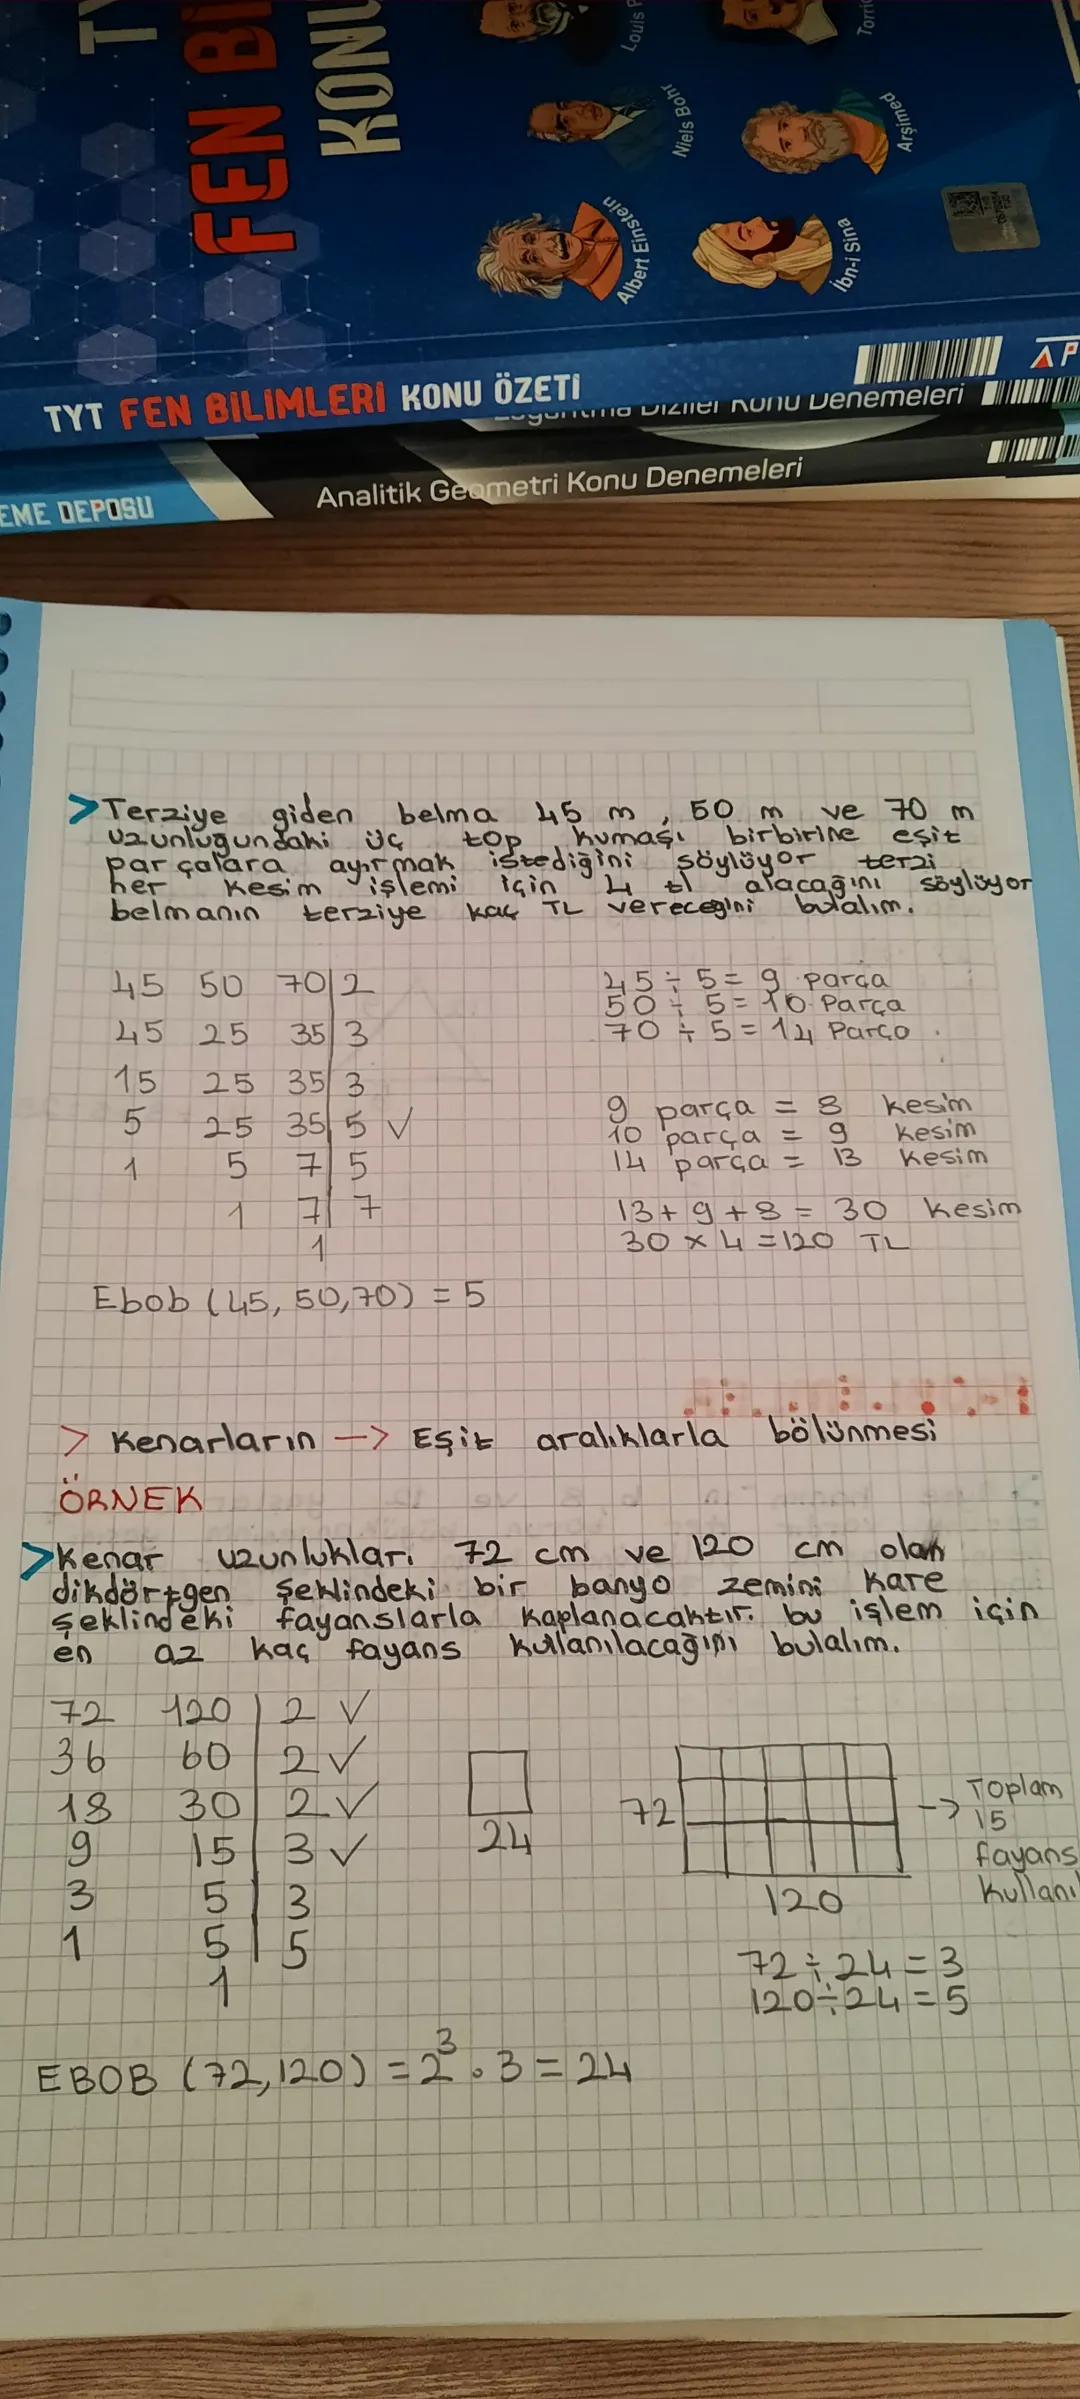 TY
FEN Bİ
KONU
Louis P
Torric
Niels Bohr
Arşimed
Albert Einstein
İbn-i Sina
TYT FEN BİLİMLERİ KONU ÖZETİ
AP
Diziler Konu Denemeleri
EME DEPOSU
Analitik Geometri Konu Denemeleri
> Terziye giden belma 45 m, 50 m ve 70 m
uzunluğundaki üç top kumaşı birbirine eşit
parçalara ayırmak istediğini söylüyor terzi
her kesim işlemi için 4 tl alacağını söylüyor
belmanın terziye kaç TL vereceğini bulalım.
45 50 70 | 2
45 25 35 | 3
15 25 35 | 3
5 25 35 | 5 ✓
1 5 7 | 5
1 7 | 7
1
Ebob (45, 50,70) = 5
45 ÷ 5 = 9 parça
50 ÷ 5 = 10 Parça
70 ÷ 5 = 14 Parça
9 parça = 8 kesim
10 parça = 9 kesim
14 parça = 13 kesim
13 + 9 + 8 = 30 kesim
30 x 4 = 120 TL
> Kenarların —> Eşit aralıklarla bölünmesi
ÖRNEK
> Kenar uzunlukları 72 cm ve 120 cm olan
dikdörtgen şeklindeki bir banyo zemini kare
şeklindeki fayanslarla kaplanacaktır. bu işlem için
en az kaç fayans kullanılacağını bulalım.
72 120 | 2 ✓
36 60 | 2 ✓
18 30 | 2 ✓
9 15 | 3 ✓
3 5 | 3
1 5 | 5
1
24
72
120
—> Toplam
15
fayans
kullanı
72 ÷ 24 = 3
120 ÷ 24 = 5
EBOB (72,120) = 2³ . 3 = 24